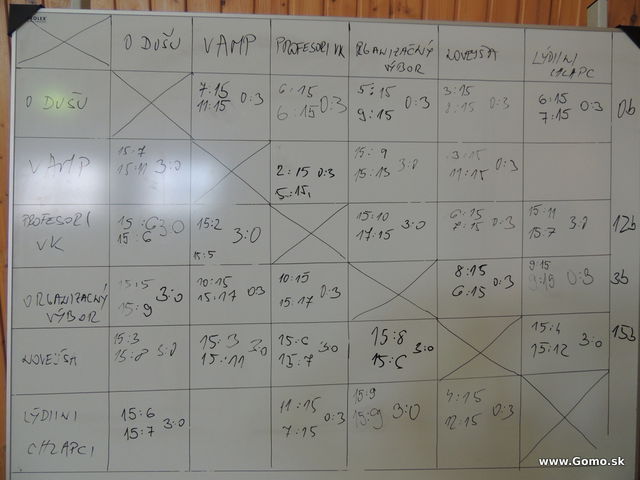 O DUŠU VAMP PROFESORI VK ORGANIZAČNÝ VÝBOR NOVEJŠA LÝDIINI CHLAPC
O DUŠU 7:15 11:15 0:3 6:15 6:15 0:3 5:15 9:15 0:3 3:15 8:15 0:3 6:15 7:15 0:3 0b
VAMP 15:7 15:11 3:0 2:15 5:15 0:3 15:9 15:13 3:0 3:15 11:15 0:3
PROFESORI VK 15:6 15:6 3:0 15:2 15:5 3:0 15:10 17:15 3:0 6:15 7:15 0:3 15:11 15:7 3:0 12b
ORGANIZAČNÝ VÝBOR 15:5 15:9 3:0 10:15 15:17 0:3 10:15 15:17 0:3 8:15 6:15 0:3 9:15 9:15 0:3 3b
NOVEJŠA 15:3 15:8 3:0 15:3 15:11 3:0 15:6 15:7 3:0 15:8 15:6 3:0 15:4 15:12 3:0 15b
LÝDIINI CHLAPCI 15:6 15:7 3:0 11:15 7:15 0:3 15:9 15:9 3:0 4:15 12:15 0:3
www.Gomo.sk